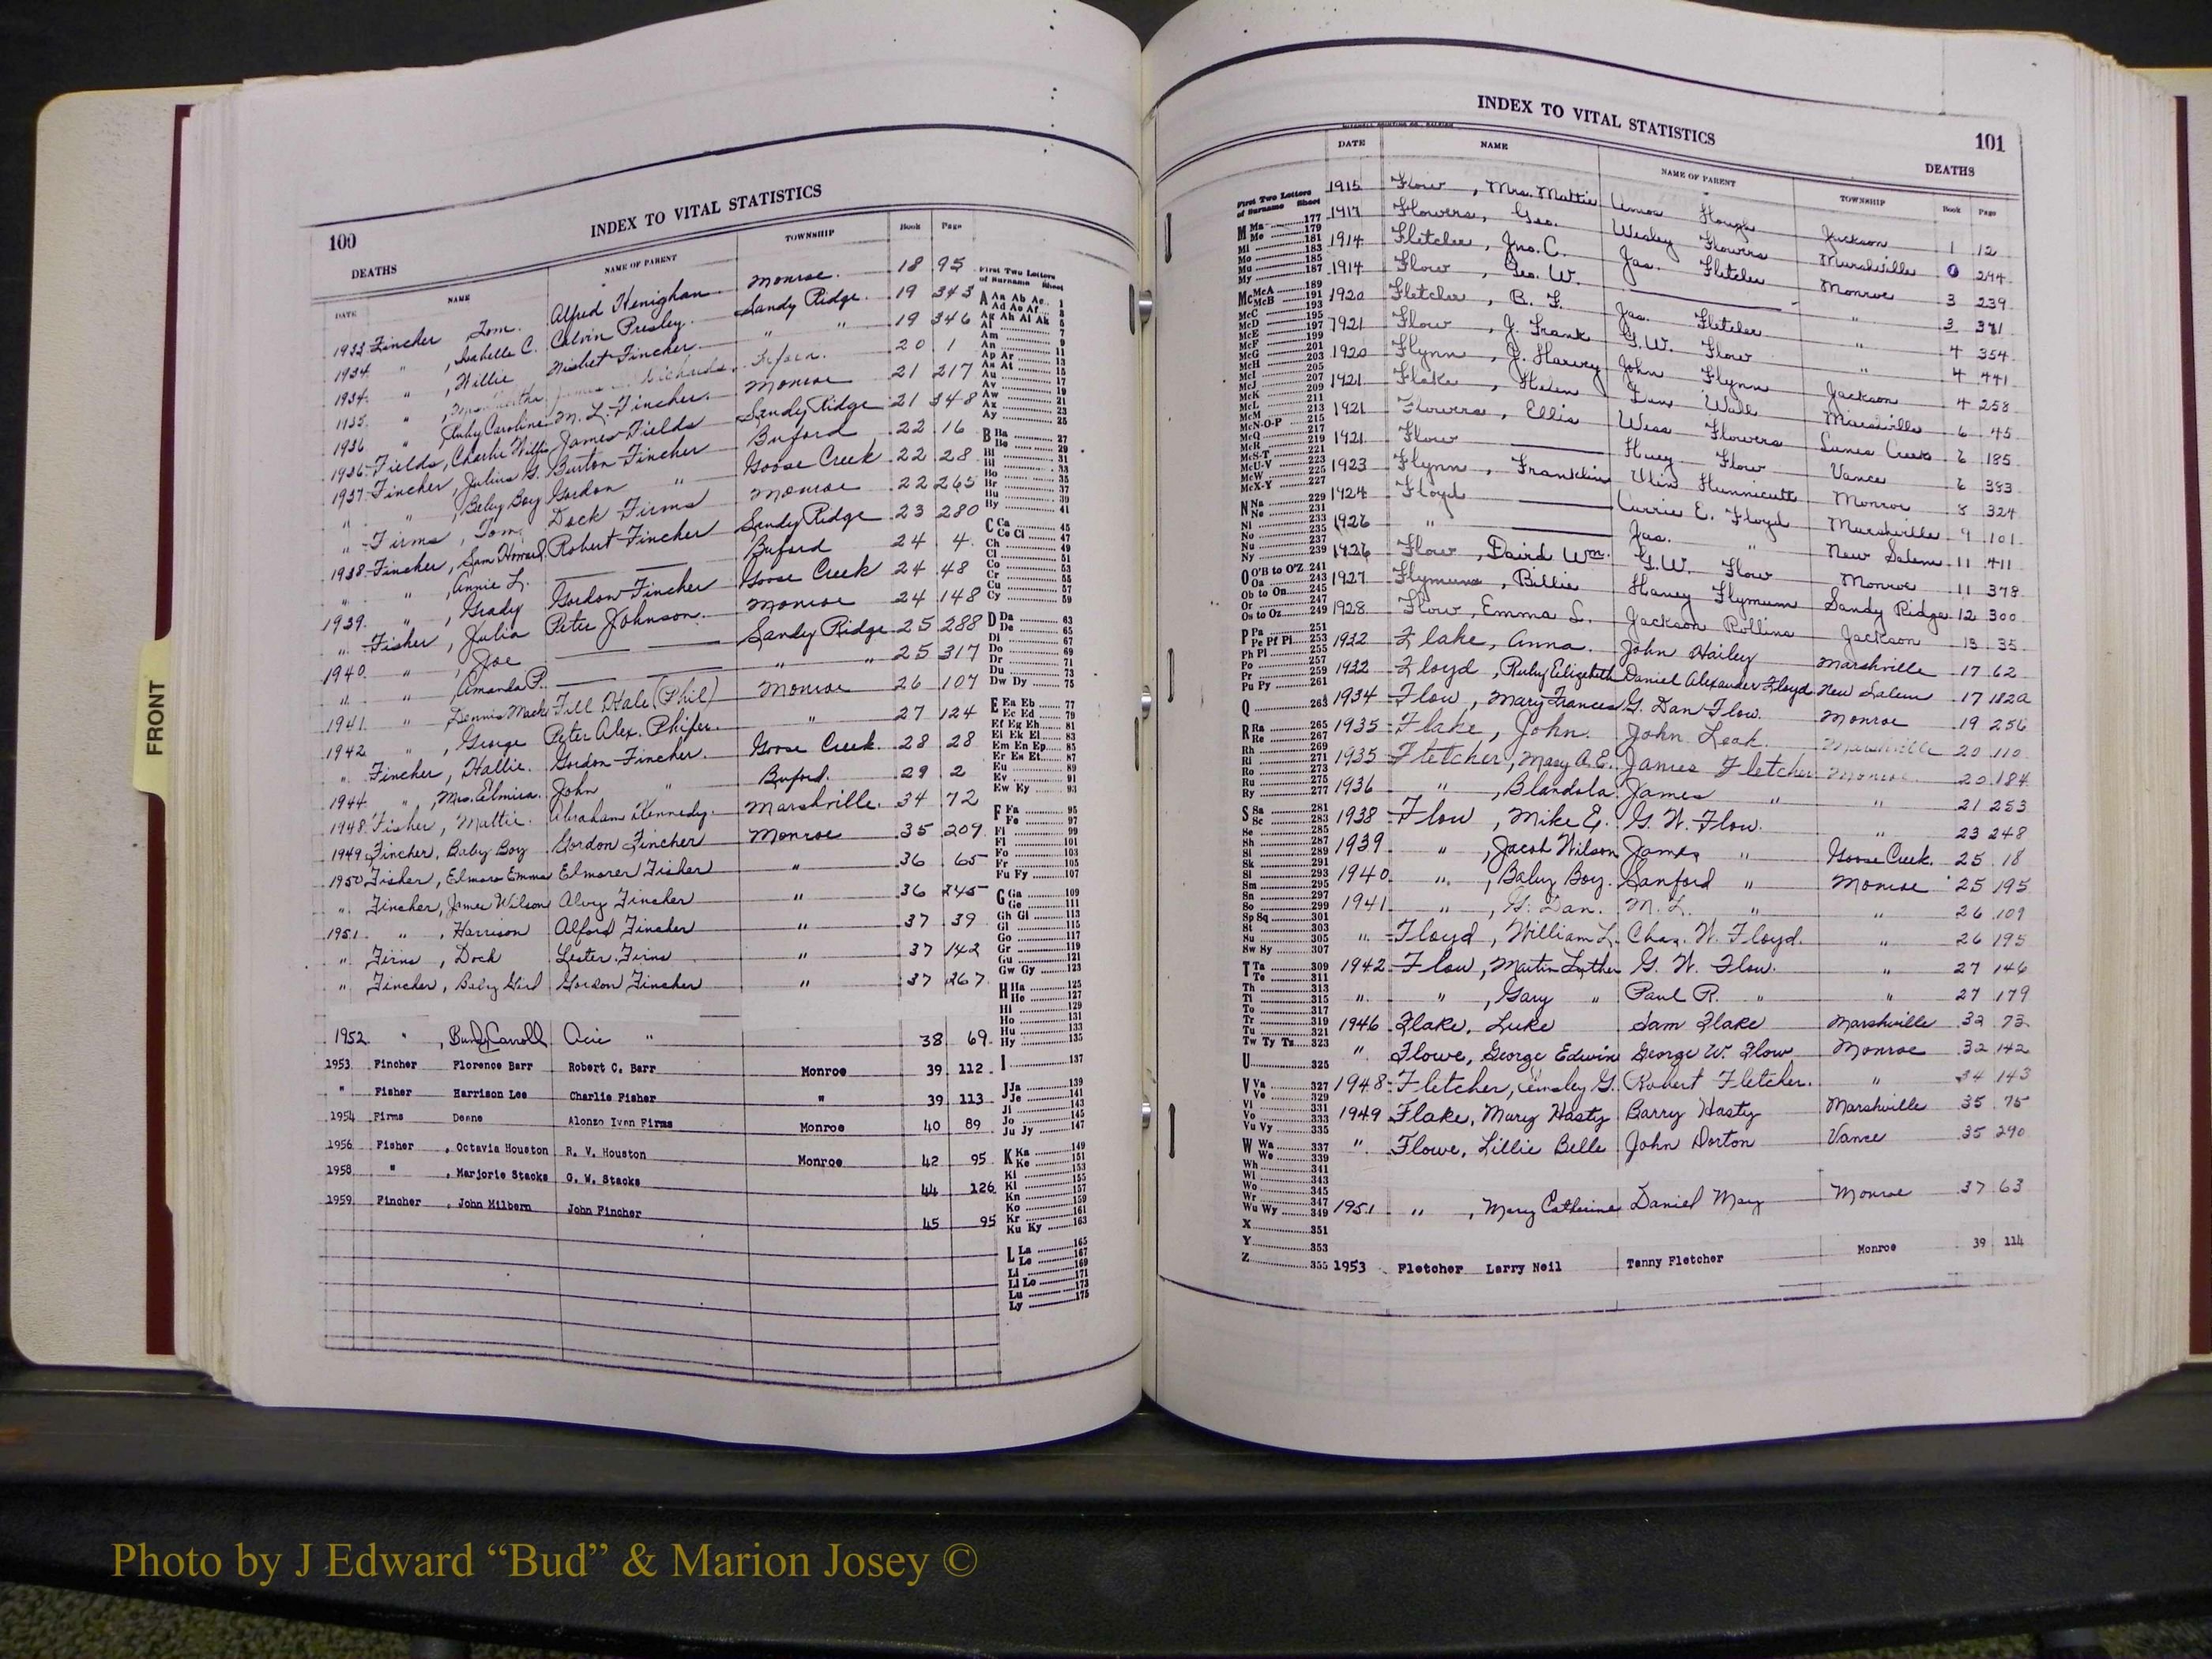 FRONT
100
INDEX TO VITAL STATISTICS
DEATHS
DATE NAME NAME OF PARENT TOWNSHIP Book Page
1933 Fincher Tom. Alfred Henighan Monroe. 18 95
1934 " , Isabelle C. Calvin Presley. Sandy Ridge. 19 343
1934 " , Willie Nisbet Fincher " " 19 346
1935. " , 20 1
1936 " , Ruby Caroline M. L. Fincher. Monroe 21 217
1936 Fields, Charlie Willis James Fields Sandy Ridge 21 348
1937 Fincher, Julius G. Burton Fincher Buford 22 16
" " , Baby Boy Gordon " Goose Creek 22 28
" Firms , Tom Dock Firms Monroe 22 265
1938 Fincher, Sam Howard Robert Fincher Sandy Ridge 23 280
" " , Annie L. Buford 24 4
1939. " , Grady Gordon Fincher Goose Creek 24 48
" Fisher , Julia Peter Johnson. Monroe 24 148
1940 " , Joe Sandy Ridge 25 288
" " , Amanda P. " " 25 317
1941. " , Dennis Mack Fill Hale (Phil) Monroe 26 107
1942 " , George Peter Alex. Phifer. " 27 124
" Fincher, Hallie. Gordon Fincher. Goose Creek. 28 28
1944 " , Mrs. Elmira. John " Buford. 29 2
1948 Fisher, Mattie. Abraham Kennedy. Marshville. 34 72
1949 Fincher, Baby Boy Gordon Fincher Monroe 35 209
1950 Fisher, Elmore Emma Elmorer Fisher " 36 65
" Fincher, James Wilson Alvy Fincher " 36 245
1951. " , Harrison Alford Fincher " 37 39
" Firms , Dock Lester Firms " 37 142
" Fincher, Baby Girl Gordon Fincher " 37 267
1952 " , Carroll " 38 69
1953 Fincher Florence Barr Robert C. Barr Monroe 39 112
" Fisher Harrison Lee Charlie Fisher " 39 113
1954 Firms Deane Alonzo Ivan Firms Monroe 40 89
1956 Fisher , Octavia Houston R. V. Houston Monroe 42 95
1958 " , Marjorie Stacks G. W. Stacks 44 126
1959 Fincher , John Milbern John Fincher 45 95
First Two Letters of Surname Sheet
A Aa Ab Ac 1
Ba 27
C Ca 45
Ce Ci 47
Ch 49
Cl 51
Co 53
Cr 55
Cu 57
Cy 59
D Da 63
De 65
Di 67
Do 69
Dr 71
Du 73
Dw Dy 75
E Ea Eb 77
Ec Ed 79
Ef Eg Eh 81
Ei Ek El 83
Em En Ep 85
Er Es Et 87
Eu 89
Ev 91
Ew Ey 93
F Fa 95
Fe 97
Fi 99
Fl 101
Fo 103
Fr 105
Fu Fy 107
G Ga 109
Ge 111
Gh Gi 113
Gl 115
Go 117
Gr 119
Gu 121
Gw Gy 123
H Ha 125
He 127
Hi 129
Ho 131
Hu 133
Hy 135
I 137
J Ja 139
Je 141
Ji 143
Jo 145
Ju Jy 147
K Ka 149
Ke 151
Ki 153
Kl 155
Kn 157
Ko 159
Kr 161
Ku Ky 163
L La 165
Le 167
Li 169
Ll Lo 171
Lu 173
Ly 175
INDEX TO VITAL STATISTICS
101
DEATHS
DATE NAME NAME OF PARENT TOWNSHIP Book Page
1915 Flow , Mrs. Mattie Amos Hough Jackson 1 12
1917 Flowers, Geo. Wesley Flowers Marshville 294
1914 Fletcher, Jno. C. Jas. Fletcher Monroe 3 239
1914 Flow , Geo. W. " 3 381
1920 Fletcher , B. F. Jas. Fletcher " 4 354
1921 Flow , J. Frank G.W. Flow " 4 441
1920 Flynn , J. Harvey John Flynn Jackson 4 258
1921 Flake , Helen Wall Marshville 6 45
1921 Flowers , Ellis Wess Flowers Lanes Creek 6 185
1921 Flow Huey Flow Vance 6 383
1923 Flynn , Franklin Hunnicutt Monroe 8 324
1924 Floyd Currie E. Floyd Marshville 9 101
1926 " Jas. " New Salem 11 411
1926 Flow , Baird Wm. G.W. Flow Monroe 11 378
1927 Flymum , Billie Haney Flymum Sandy Ridge 12 300
1928 Flow, Emma L. Jackson Rollins Jackson 13 35
1932 Flake, Anna. John Hailey Marshville 17 62
1932 Floyd , Ruby Elizabeth Daniel Alexander Floyd New Salem 17 182A
1934 Flow , Mary Frances G. Dan Flow. Monroe 19 256
1935 Flake , John. John Leak. Marshville 20 110
1935 Fletcher, Mary A.E. James Fletcher Monroe. 20 184
1936 " , Blandola. James " " 21 253
1938 Flow , Mike E. G. W. Flow. " 23 248
1939 " , Jacob Wilson James " Goose Creek. 25 18
1940 " , Baby Boy. Sanford " Monroe 25 195
1941 " , G. Dan. M. L. " " 26 109
" Floyd , William L. Chas. W. Floyd. " 26 195
1942 Flow , Martin Luther G. W. Flow. " 27 146
" " , Gary " Paul R. " " 27 179
1946 Flake, Luke Sam Flake Marshville 32 73
" Flowe, George Edwin George W. Flow Monroe 32 142
1948 Fletcher, Emsley G. Robert Fletcher. " 34 143
1949 Flake, Mary Hasty Barry Hasty Marshville 35 75
" Flowe, Lillie Belle John Dorton Vance 35 290
1951 " , Mary Catherine Daniel May Monroe 37 63
1953 Fletcher Larry Neil Tanny Fletcher Monroe 39 114
First Two Letters of Surname Sheet
M Ma 177
Me 179
Mi 181
Mo 183
Mu 185
My 187
Mc McA 189
McB 191
McC 193
McD 195
McE 197
McF 199
McG 201
McH 203
McI 205
McJ 207
McK 209
McL 211
McM 213
McN-O-P 215
McQ 217
McR 219
McS-T 221
McU-V 223
McW 225
McX-Y 227
N Na 229
Ne 231
Ni 233
No 235
Nu 237
Ny 239
O O'B to O'Z 241
Oa 243
Ob to On 245
Or 247
Os to Oz 249
P Pa 251
Pe Pf Pl 253
Ph Pi 255
Po 257
Pr 259
Pu Py 261
Q 263
R Ra 265
Re 267
Rh 269
Ri 271
Ro 273
Ru 275
Ry 277
S Sa 281
Sc 283
Se 285
Sh 287
Si 289
Sk 291
Sl 293
Sm 295
Sn 297
So 299
Sp Sq 301
St 303
Su 305
Sw Sy 307
T Ta 309
Te 311
Th 313
Ti 315
To 317
Tr 319
Tu 321
Tw Ty Tz 323
U 325
V Va 327
Ve 329
Vi 331
Vo 333
Vu Vy 335
W Wa 337
We 339
Wh 341
Wi 343
Wo 345
Wr 347
Wu Wy 349
X 351
Y 353
Z 355
Photo by J Edward “Bud” & Marion Josey ©